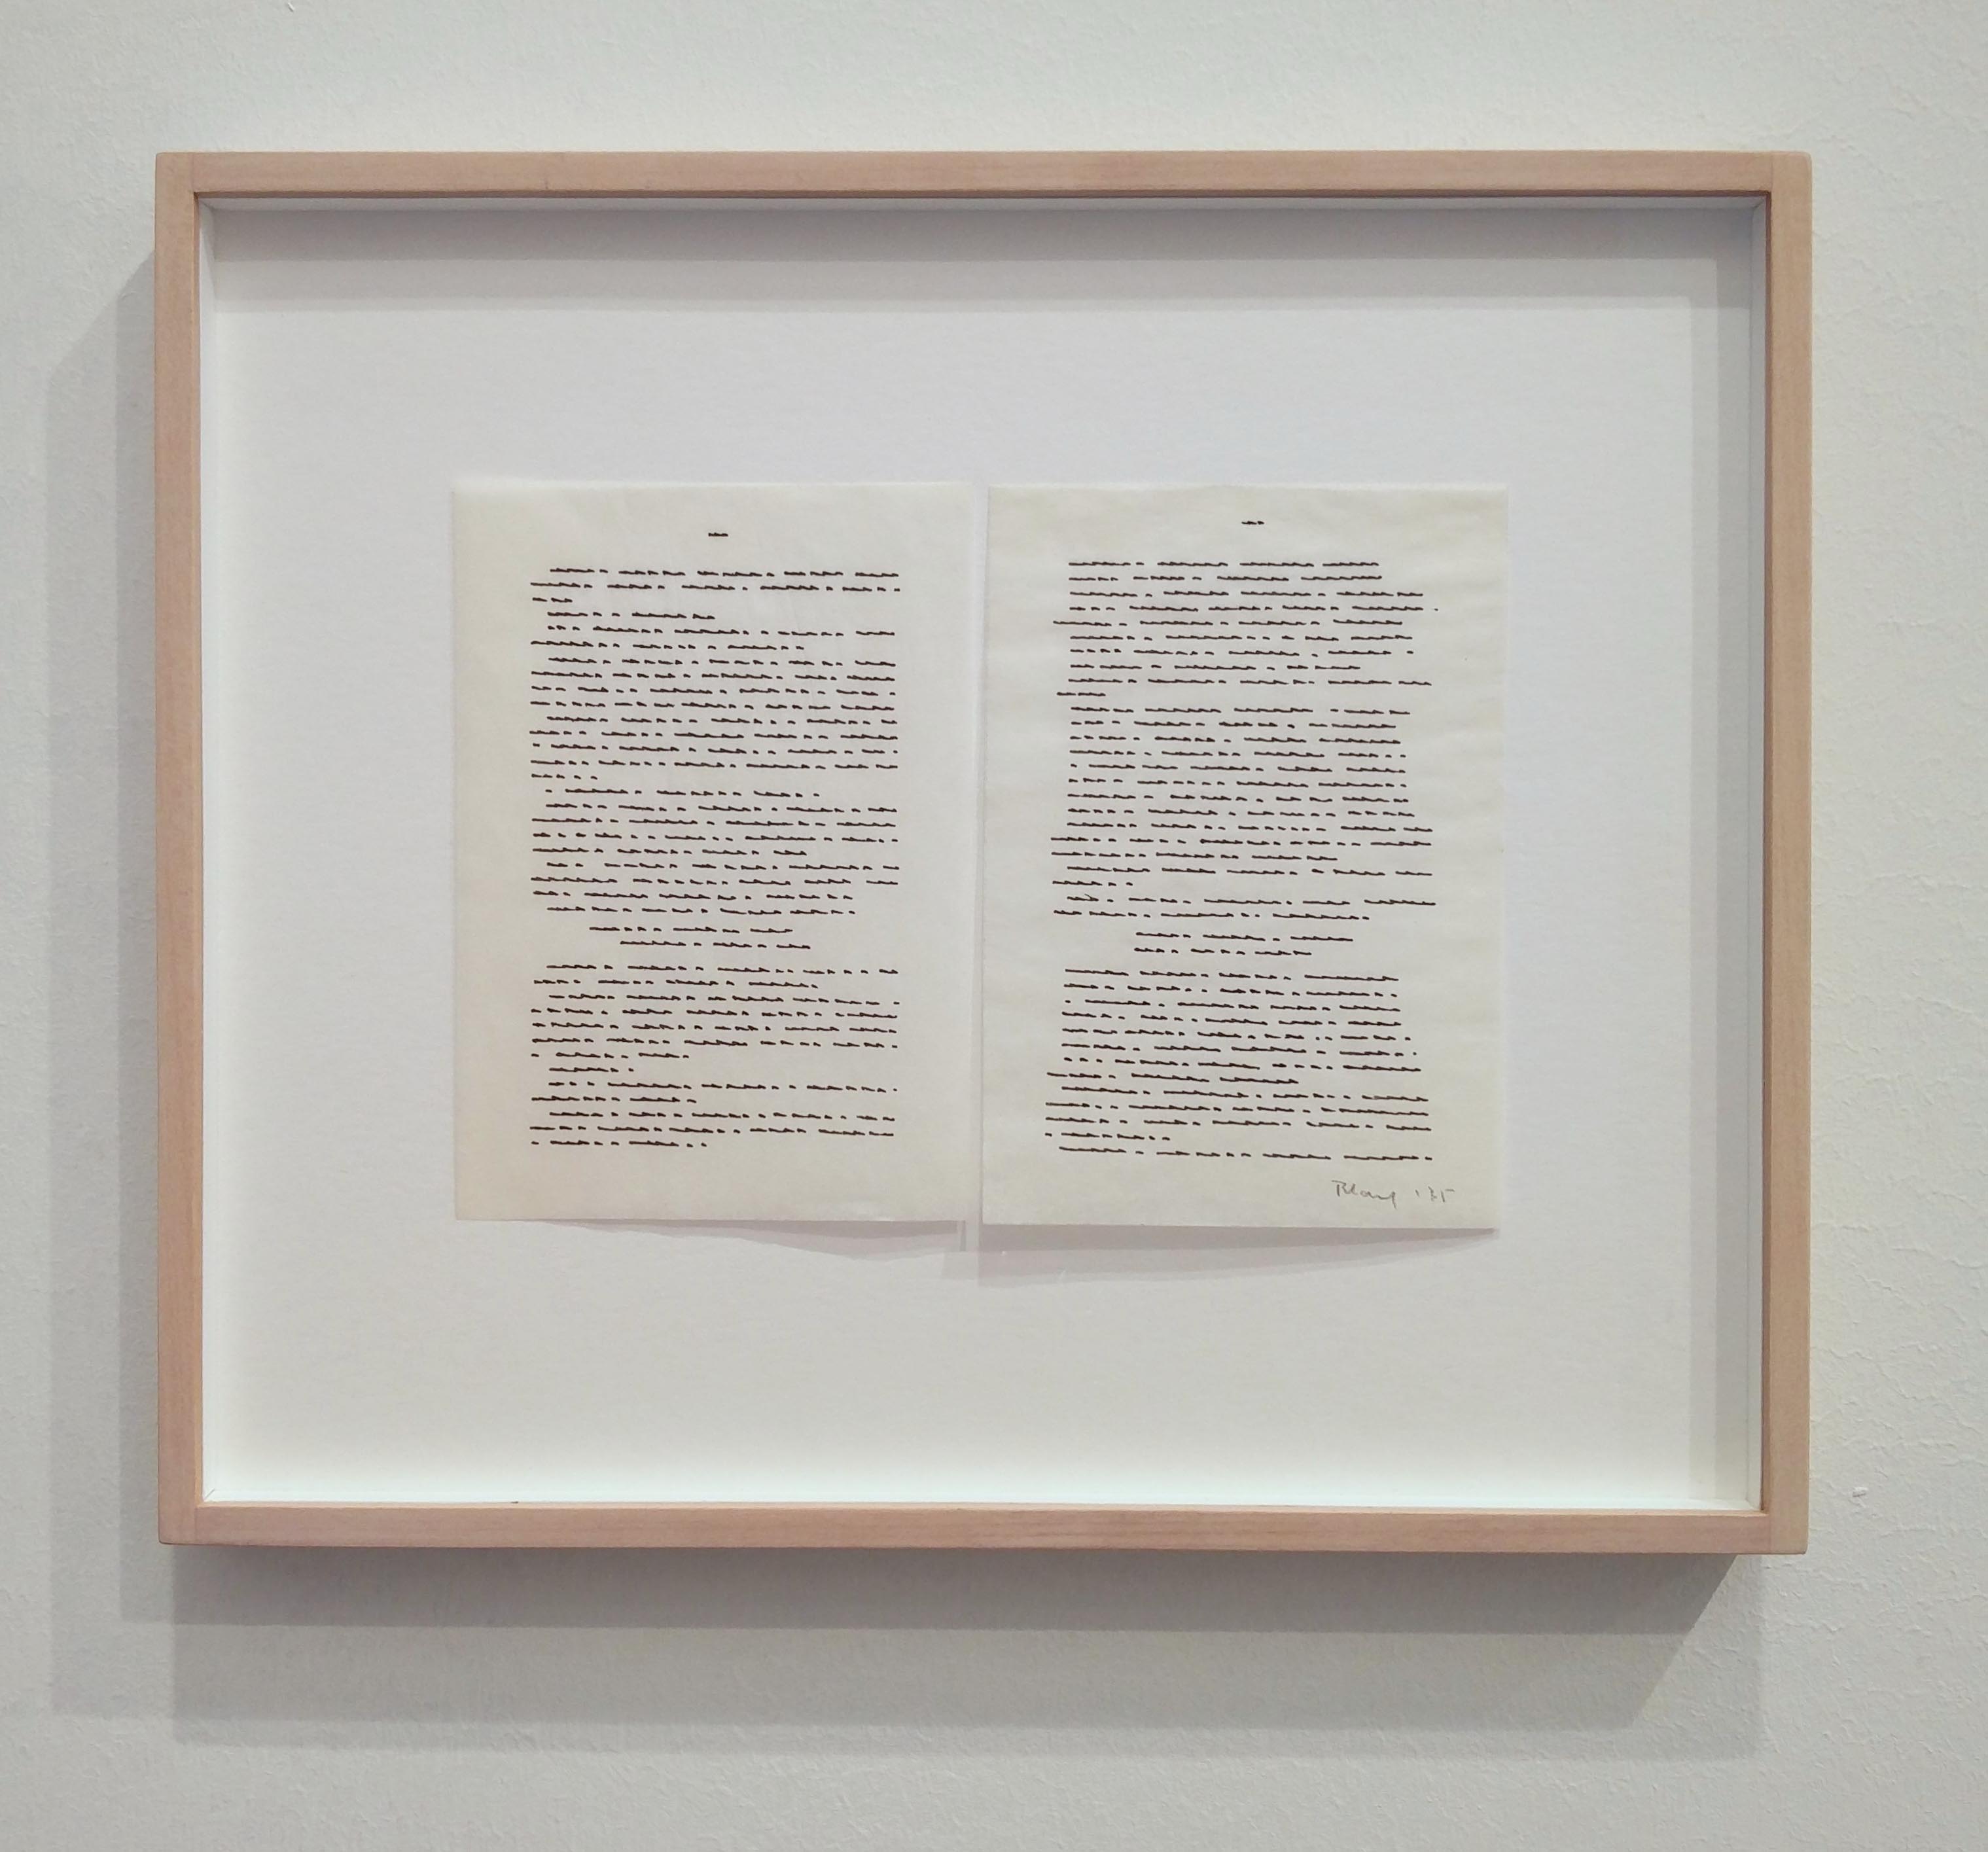 Blank '75